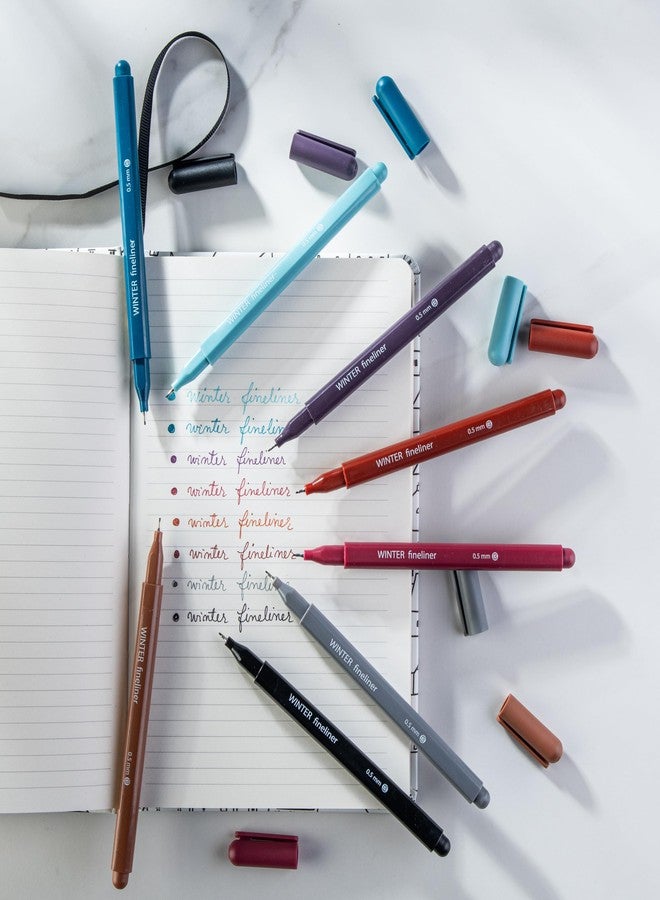 WINTER fineliner 0.5 mm
WINTER fineliner
WINTER fineliner 0.5 mm
WINTER fineliner 0.5 mm
WINTER fineliner 0.5 mm
WINTER fineliner 0.5 mm
WINTER fineliner 0.5 mm
WINTER fineliner 0.5 mm
winter fineliner
winter fineliner
winter fineliner
winter fineliner
winter fineliner
winter fineliner
winter fineliner
winter fineliner